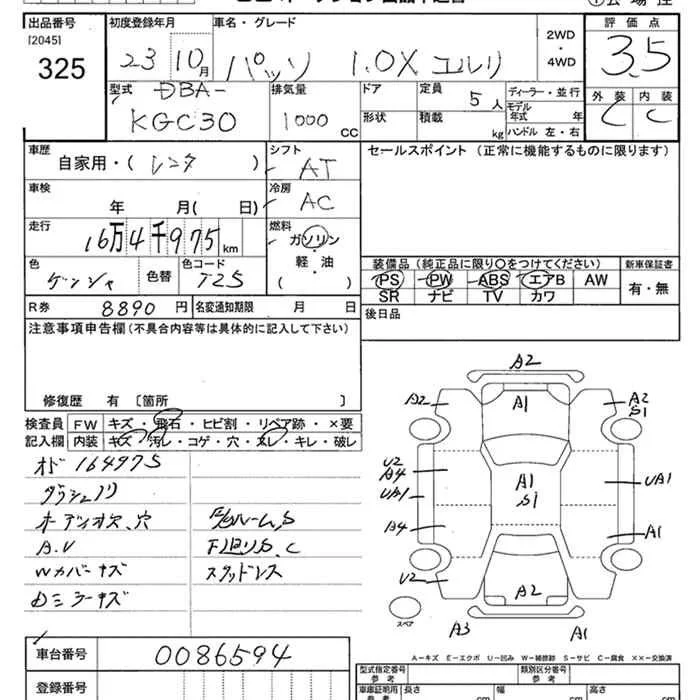 出品番号
[2045]
325
初度登録年月
23 10月
車名・グレード
パッソ 1.0X ユルリ
2WD
・
4WD
評価点
3.5
型式
DBA-
KGC30
排気量
1000 CC
ドア
形状
定員
5人
積載
kg
ディーラー・並行
モデル
年式 年
ハンドル 左・右
外装
C
内装
C
車歴
自家用・(レンタ )
シフト
AT
セールスポイント (正常に機能するものに限ります)
車検
年 月(日)
冷房
AC
走行
16万4千975km
燃料
ガソリン
・
軽・油
( )
色
ゲンシャ
色替
色コード
T25
装備品 (純正品に限り〇をつけてください)
新車保証書
PS PW ABS エアB AW
SR ナビ TV カワ
有・無
R券
8890円
名変通知期限 月 日
後日品
注意事項申告欄 (不具合内容等は具体的に記入して下さい)
修復歴 有 [箇所 ]
検査員
記入欄
FW キズ・飛石・ヒビ割・リペア跡・×要
内装 キズ・汚レ・コゲ・穴・スレ・キレ・破レ
オド 164975
オーディオス、穴
A.V
Wカバーキズ
Dミラーキズ
F下廻りS、C
スタッドレス
A2
A2
A1
A2
S1
U2
A4
UA1
A1
S1
UA1
A4
A1
U2
A2
スペア
A3
A1
A－キズ E－エクボ U－凹み W－補修跡 S－サビ C－腐食 ××－交換済
車台番号
0086594
登録番号
型式指定番号
参考
類別区分番号
参考
車庫証明用
参考
長さ
cm
幅
cm
高さ
cm